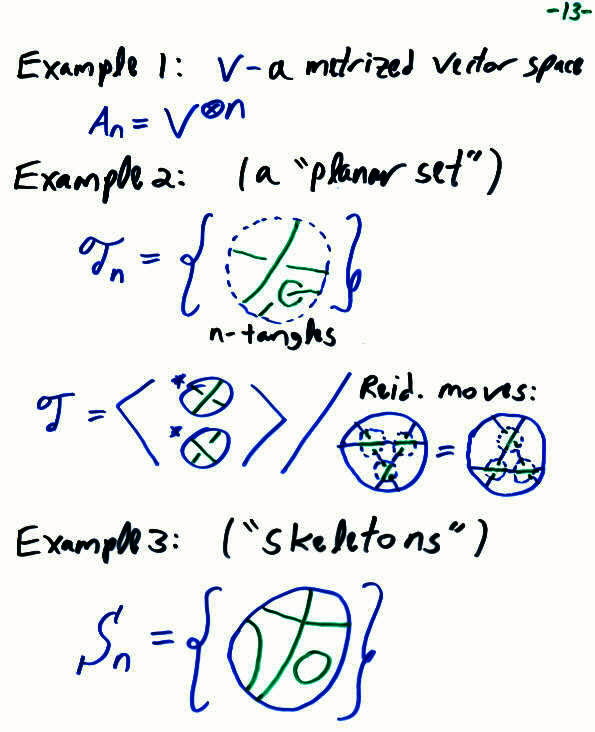 -13-
Example 1: V - a metrized vector space
Aₙ = V^⊗n
Example 2: (a "planar set")
𝒯ₙ = { }
n-tangles
𝒯 = < * * > / Reid. moves:
=
Example 3: ("skeletons")
𝒮ₙ = { }